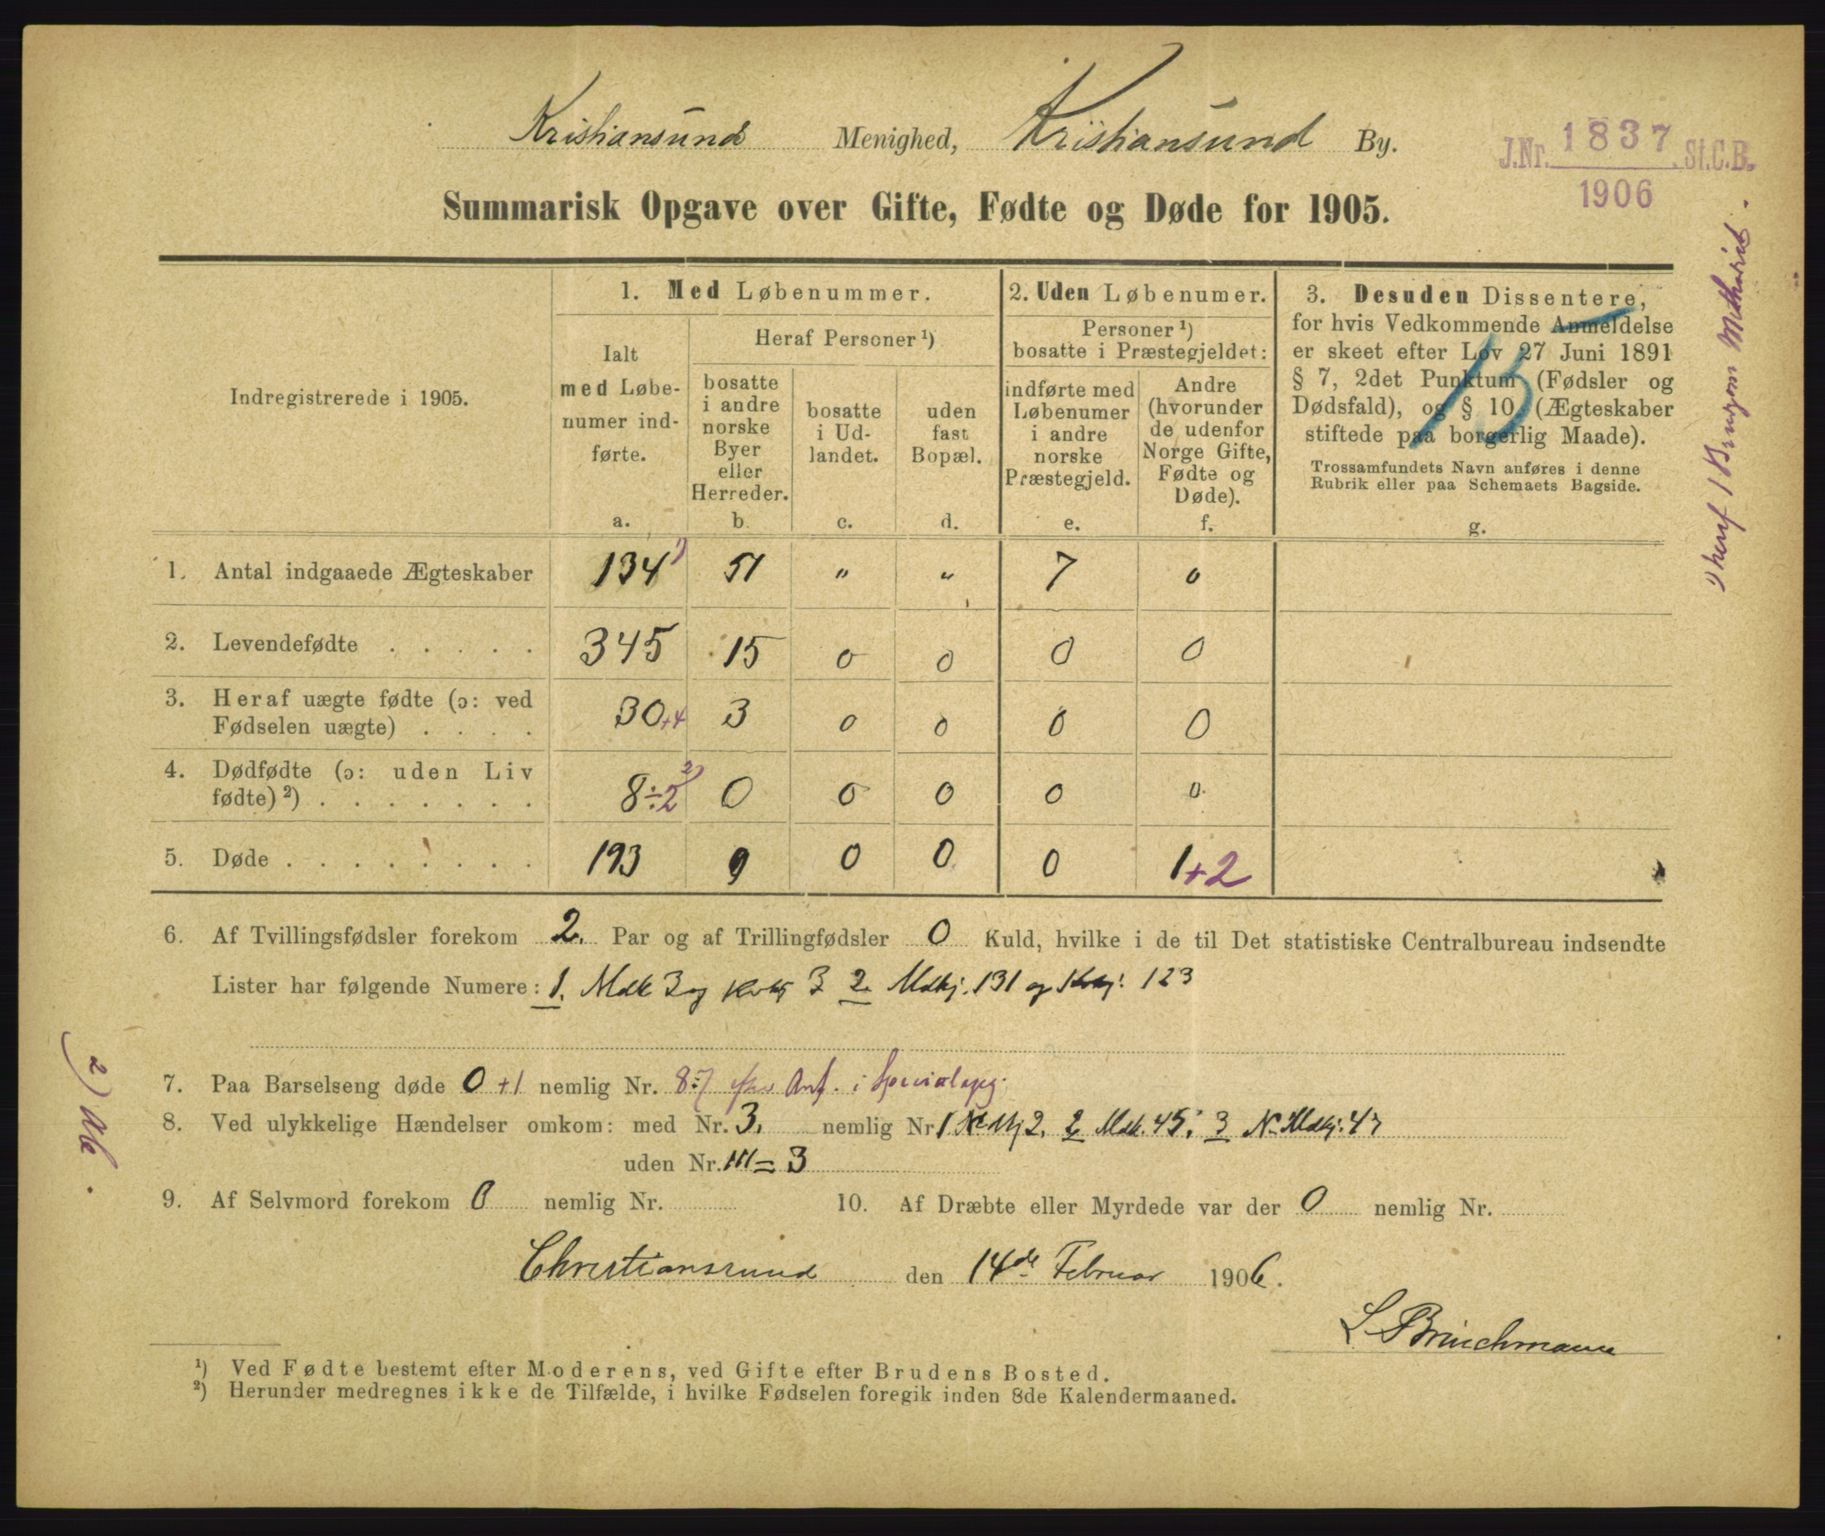 Kristiansund Menighed, Kristiansund By.
J.Nr. 1837 St.C.B.
1906
Summarisk Opgave over Gifte, Fødte og Døde for 1905.
Indregistrerede i 1905.
1. Med Løbenummer.
Ialt
med Løbe-
numer ind-
førte.
a.
Heraf Personer ¹)
bosatte
i andre
norske
Byer
eller
Herreder.
b.
bosatte
i Ud-
landet.
c.
uden
fast
Bopæl.
d.
2. Uden Løbenumer.
Personer ¹)
bosatte i Præstegjeldet:
indførte med
Løbenumer
i andre
norske
Præstegjeld.
e.
Andre
(hvorunder
de udenfor
Norge Gifte,
Fødte og
Døde).
f.
3. Desuden Dissentere,
for hvis Vedkommende Anmeldelse
er skeet efter Lov 27 Juni 1891
§ 7, 2det Punktum (Fødsler og
Dødsfald), og § 10 (Ægteskaber
stiftede paa borgerlig Maade).
Trossamfundets Navn anføres i denne
Rubrik eller paa Schemaets Bagside.
g.
1. Antal indgaaede Ægteskaber 134 ¹) 51 " " 7 0
2. Levendefødte . . . . . 345 15 0 0 0 0
3. Heraf uægte fødte (ɔ: ved
Fødselen uægte) . . . . 30+4 3 0 0 0 0
4. Dødfødte (ɔ: uden Liv
fødte) ²) . . . . . . . 8÷2 ²) 0 0 0 0 0
5. Døde . . . . . . . . 193 9 0 0 0 1+2
6. Af Tvillingsfødsler forekom 2. Par og af Trillingfødsler 0 Kuld, hvilke i de til Det statistiske Centralbureau indsendte
Lister har følgende Numere: 1. Mdk 3 og Kvkj 3 2. Mdkj. 131 og Kvkj. 123
7. Paa Barselseng døde 0 +1 nemlig Nr. 87 Anf. i Specialopg.
8. Ved ulykkelige Hændelser omkom: med Nr. 3. nemlig Nr. 1 Mdkj 2, 2 Mdk. 45, 3 Nr Mdkj. 47
uden Nr. III = 3
9. Af Selvmord forekom 0 nemlig Nr.
10. Af Dræbte eller Myrdede var der 0 nemlig Nr.
Christianssund den 14de Februar 1906.
L. Brinchmann
¹) Ved Fødte bestemt efter Moderens, ved Gifte efter Brudens Bosted.
²) Herunder medregnes ikke de Tilfælde, i hvilke Fødselen foregik inden 8de Kalendermaaned.
¹) heraf 1
2)